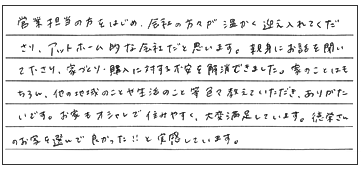 営業担当の方をはじめ、会社の方々が温かく迎え入れてくだ
さり、アットホーム的な会社だと思います。親身にお話を聞い
て下さり、家づくり・購入に対する不安を解消できました。家のことはも
ちろん、他の地域のことや生活のこと等色々教えていただき、ありがた
いです。お家もオシャレで住みやすく、大変満足しています。徳栄さん
のお家を選んで良かった!!と実感しています。